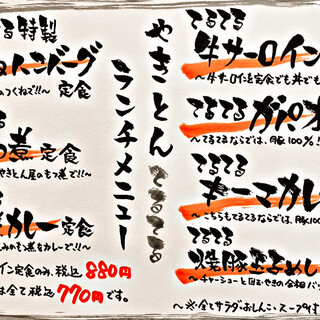 やきとん てるてる
ランチメニュー
てるてる
牛サーロイン
～牛サーロインを定食でも丼でも
てるてる
ガパオ
～てるてるならでは、豚100％！
てるてる
キーマカレ
～こちらもてるてるならでは、豚100
てるてる
焼豚玉子めし
～チャーシューと目玉やきの合相バッ
～※全てサラダ・おしんこ・スープ付
る特製
ハンバーグ
のつくねで!!～ 定食
る
煮 定食
やきとん屋のもつ煮で!!～
る
カレー 定食
しみのもつ煮をカレーで!!～
イン定食のみ、税込880円
は全て税込770円です。